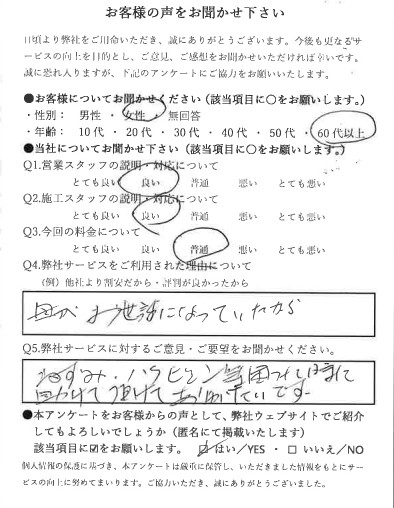 お客様の声をお聞かせ下さい
日頃より弊社をご用命いただき、誠にありがとうございます。今後も更なるサ
ービスの向上を目的とし、ご意見、ご感想をお聞かせいただければ幸いです。
誠に恐れ入りますが、下記のアンケートにご協力をお願いいたします。
●お客様についてお聞かせください（該当項目に〇をお願いします。）
・性別： 男性 ・ 女性 ・ 無回答
・年齢： 10代 ・ 20代 ・ 30代 ・ 40代 ・ 50代 ・ 60代以上
●当社についてお聞かせ下さい（該当項目に〇をお願いします。）
Q1.営業スタッフの説明・対応について
とても良い 良い 普通 悪い とても悪い
Q2.施工スタッフの説明・対応について
とても良い 良い 普通 悪い とても悪い
Q3.今回の料金について
とても良い 良い 普通 悪い とても悪い
Q4.弊社サービスをご利用された理由について
（例）他社より割安だから・評判が良かったから
母がお世話になっていたから
Q5.弊社サービスに対するご意見・ご要望をお聞かせください。
ねずみ・ハクビシン等
て頂けて
●本アンケートをお客様からの声として、弊社ウェブサイトでご紹介
してもよろしいでしょうか（匿名にて掲載いたします）
該当項目に☑をお願いします。 ☑はい／YES ・ □ いいえ／NO
個人情報の保護に基づき、本アンケートは厳重に保管し、いただきました情報をもとにサー
ビスの向上に努めてまいります。ご協力いただき、誠にありがとうございました。